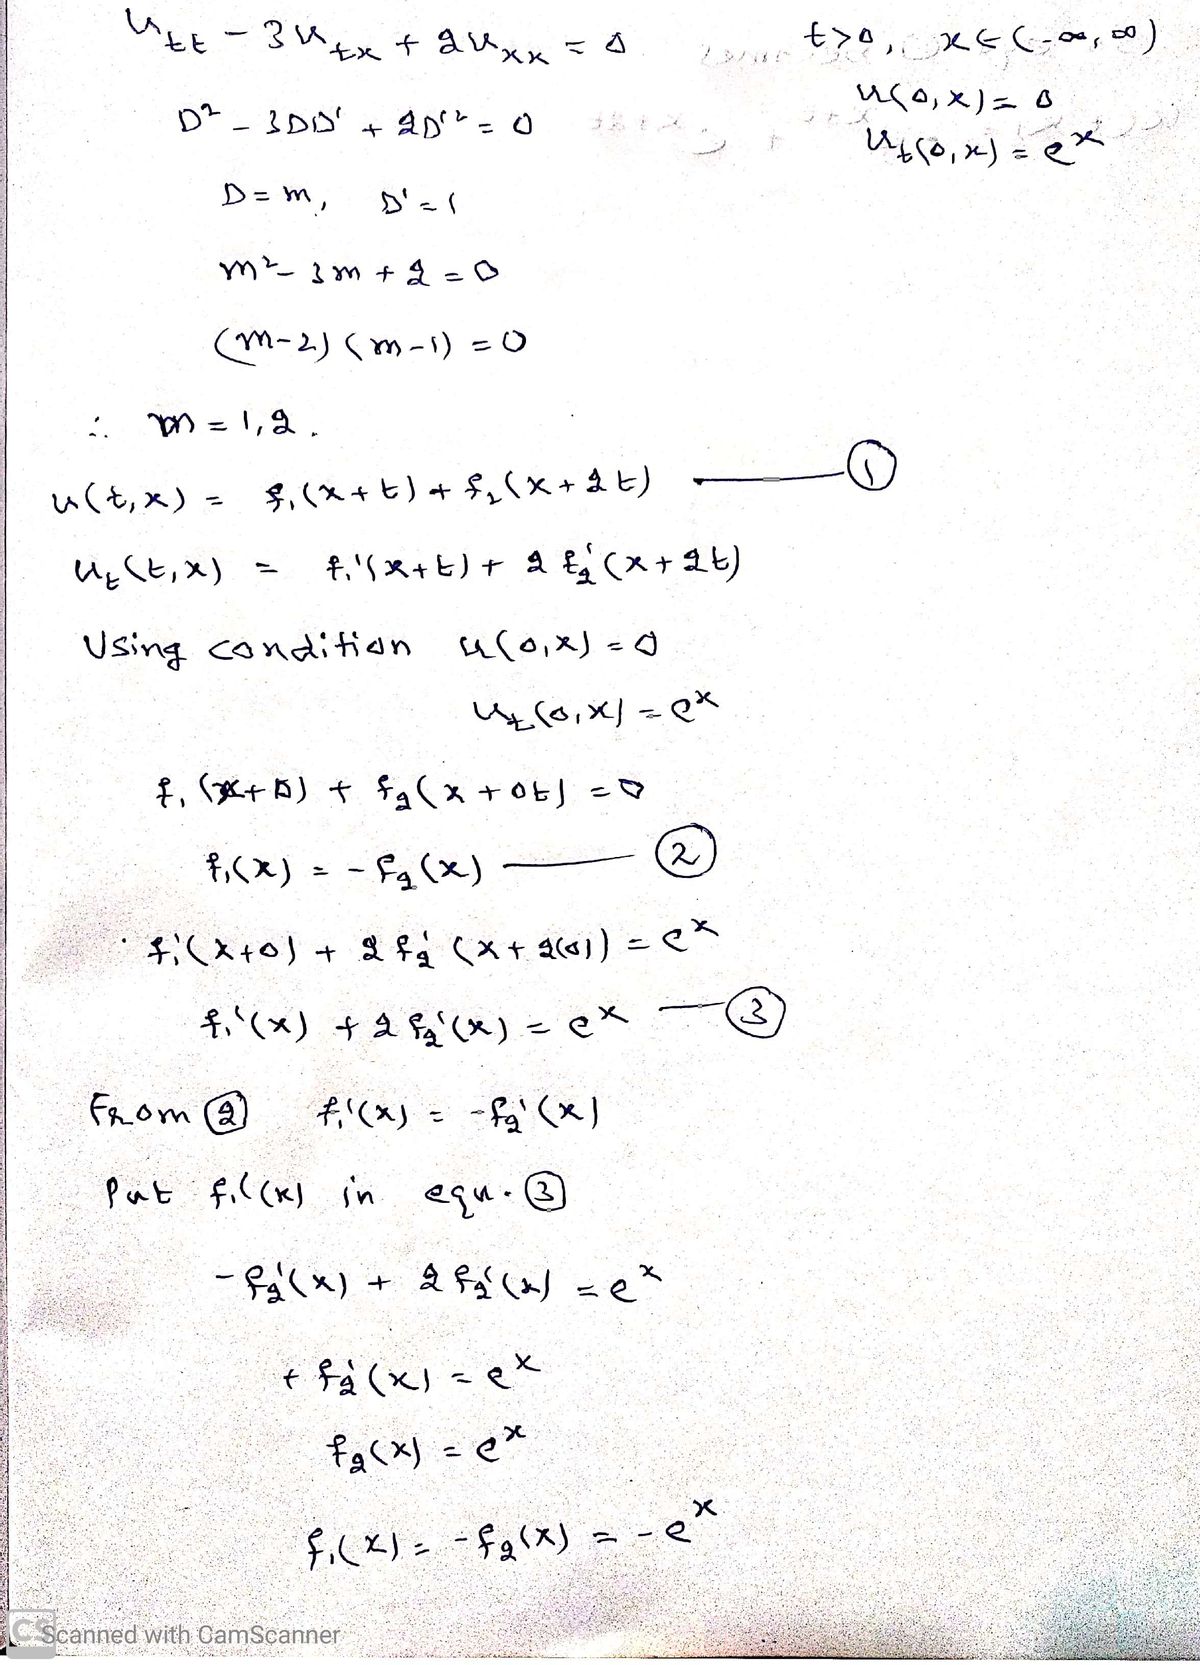 u_tt - 3u_tx + 2u_xx = 0    t>0, x∈(-∞,∞)
u(0,x) = 0
D² - 3DD' + 2D'² = 0    u_t(0,x) = e^x
D = m, D' = 1
m² - 3m + 2 = 0
(m-2)(m-1) = 0
∴ m = 1,2.
u(t,x) = f₁(x+t) + f₂(x+2t) — ①
u_t(t,x) = f₁'(x+t) + 2f₂'(x+2t)
Using condition u(0,x) = 0
u_t(0,x) = e^x
f₁(x+0) + f₂(x+0t) = 0
f₁(x) = -f₂(x) — ②
f₁'(x+0) + 2f₂'(x+2(0)) = e^x
f₁'(x) + 2f₂'(x) = e^x — ③
From ② f₁'(x) = -f₂'(x)
Put f₁'(x) in equ. ③
-f₂'(x) + 2f₂'(x) = e^x
+ f₂'(x) = e^x
f₂(x) = e^x
f₁(x) = -f₂(x) = -e^x
CS Scanned with CamScanner